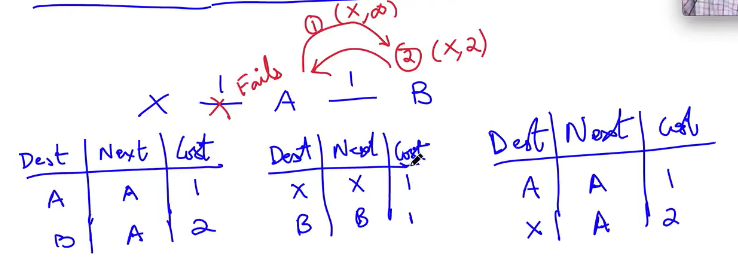 ① (X,∞)
② (X,2)
1 Fails 1
X A B
Dest Next Cost
A A 1
B A 2
Dest Next Cost
X X 1
B B 1
Dest Next Cost
A A 1
X A 2